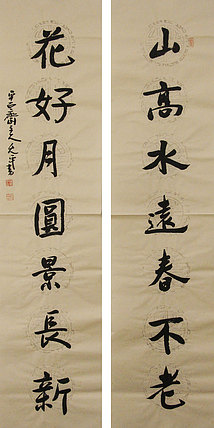 山高水遠春不老
花好月圓景長新